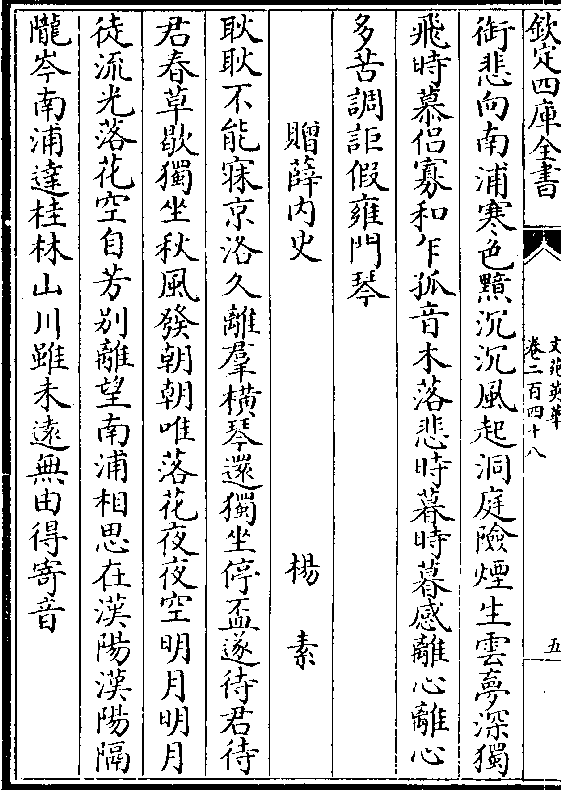 欽定四庫全書
文苑英華
卷二百四十八
五
銜悲向南浦寒色黯沉沉風起洞庭險煙生雲夢深獨
飛時慕侶寡和乍孤音木落悲時暮時暮感離心離心
多苦調詎假雍門琴
贈薛内史
楊素
耿耿不能寐京洛久離羣橫琴還獨坐停盃遂待君待
君春草歇獨坐秋風發朝朝唯落花夜夜空明月明月
徒流光落花空自芳别離望南浦相思在漢陽漢陽隔
隴岑南浦達桂林山川雖未遠無由得寄音